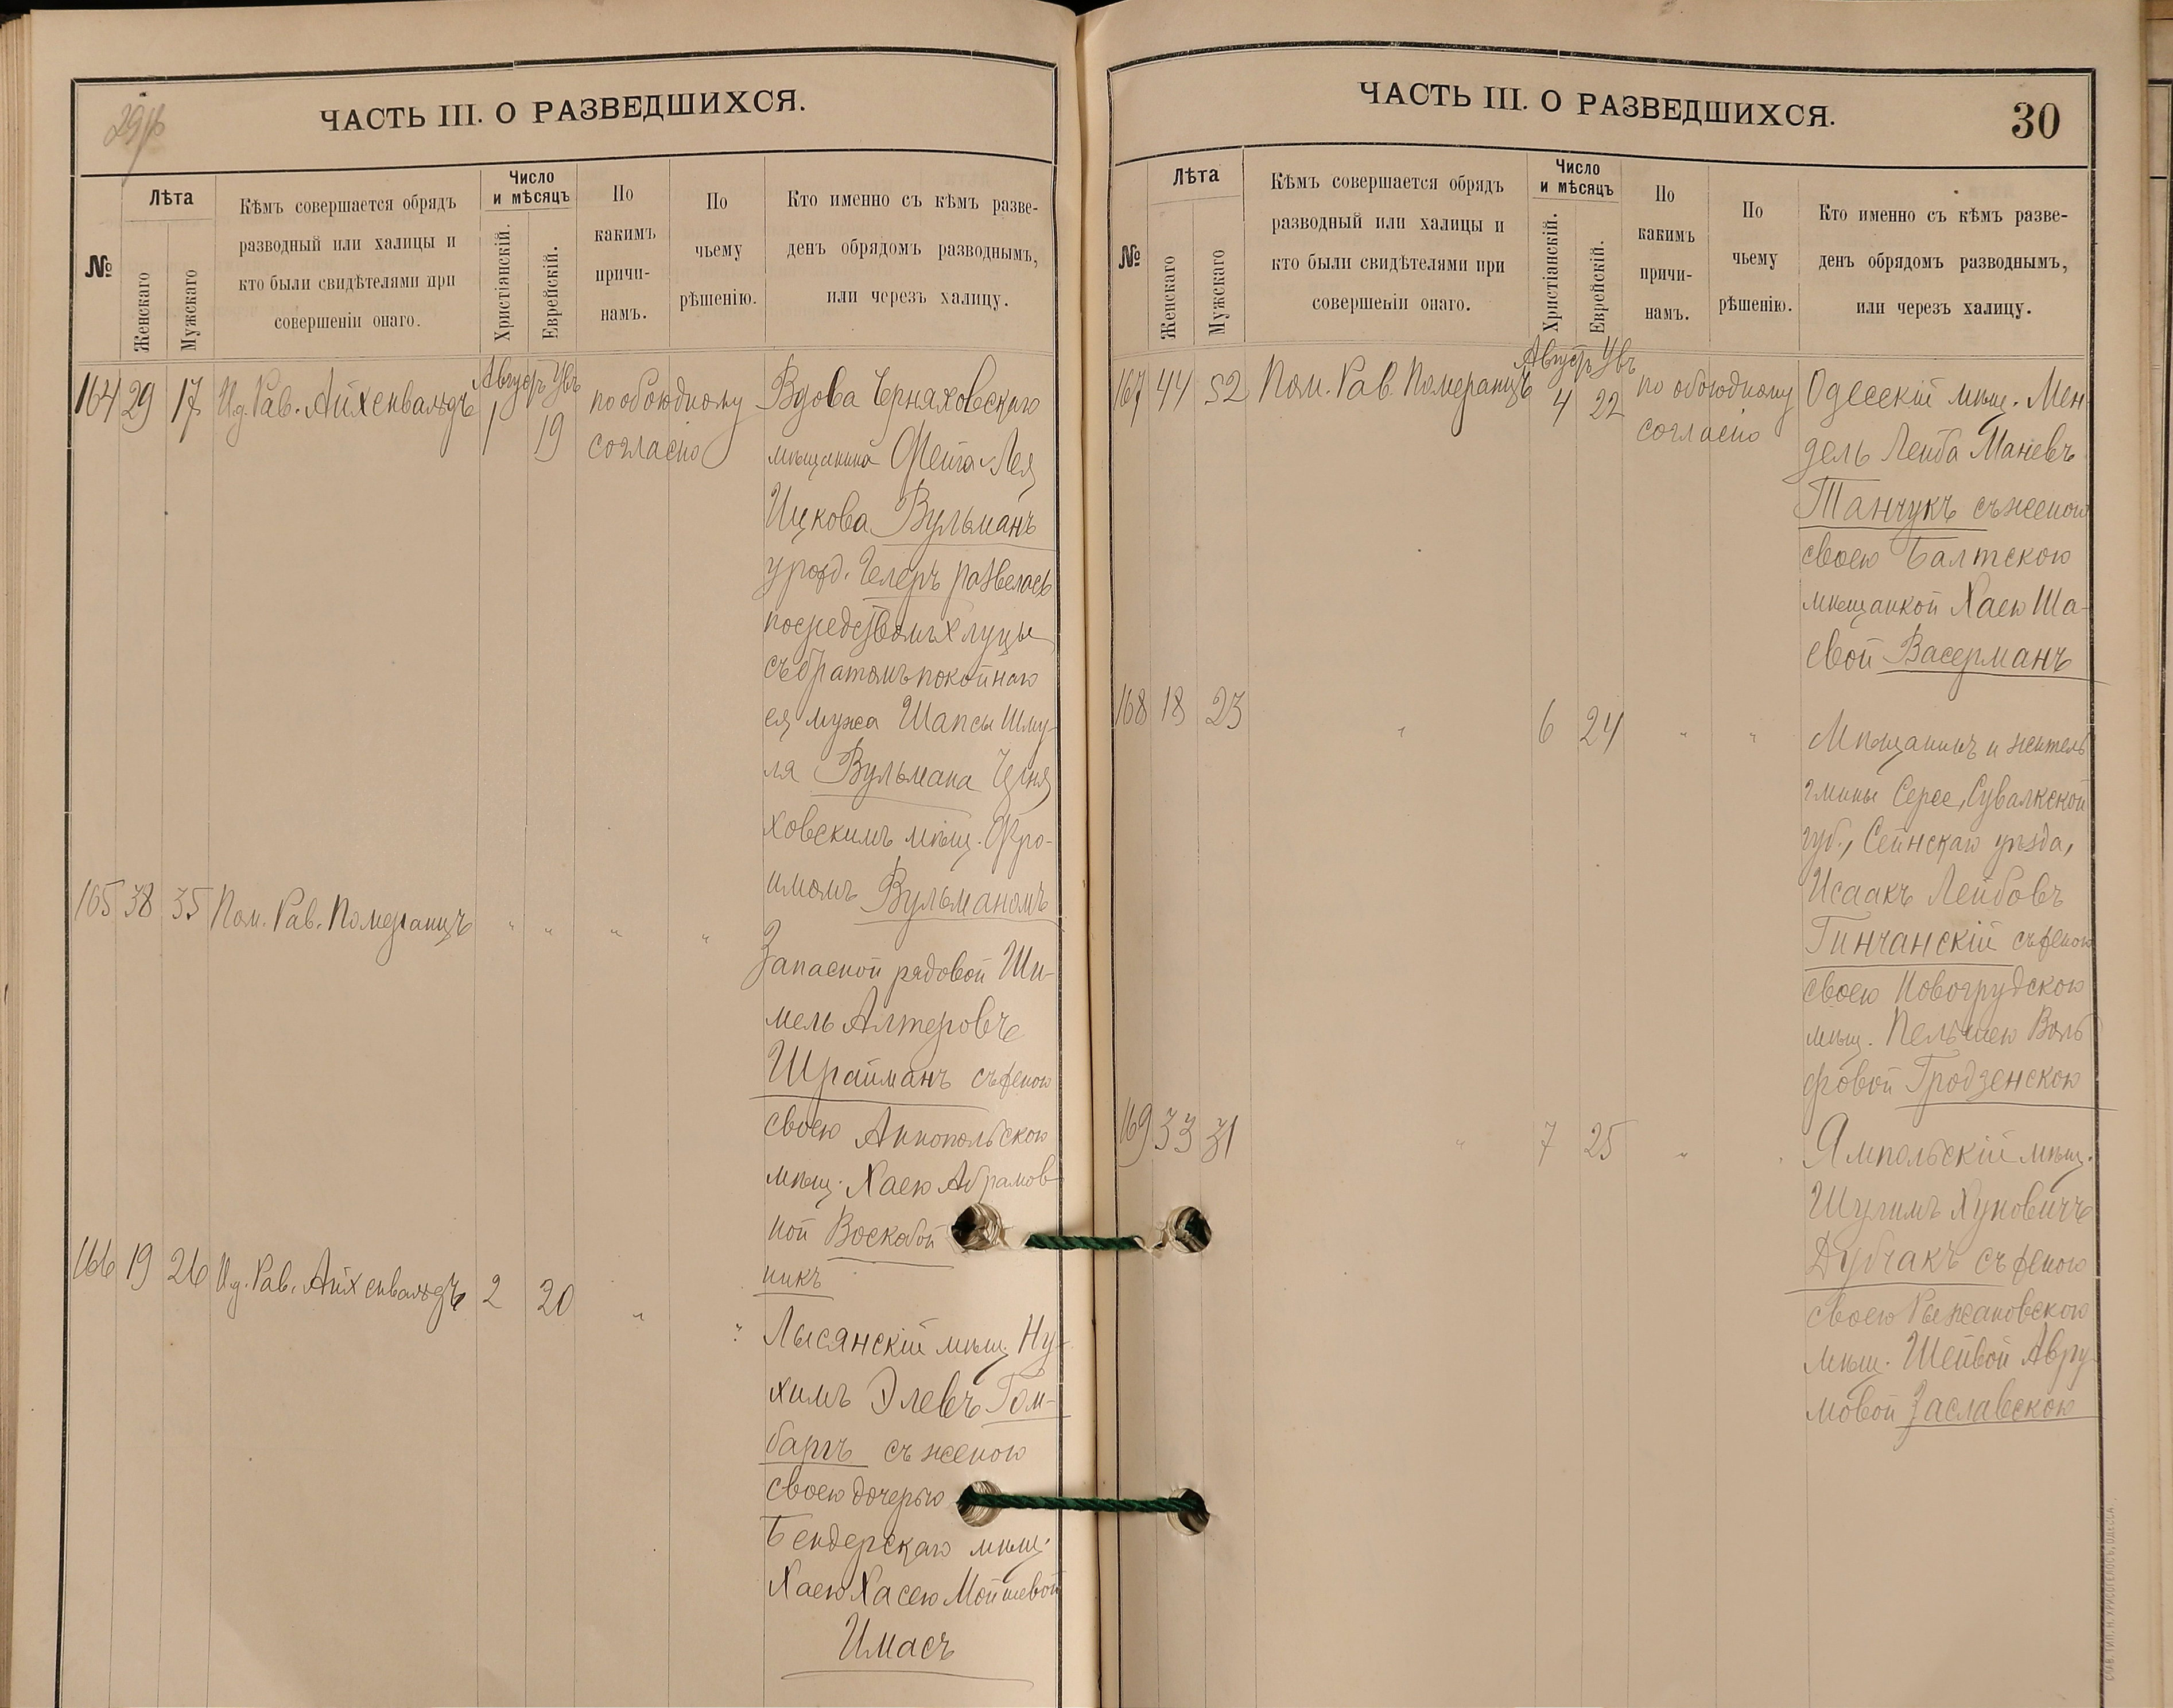 29/об
ЧАСТЬ III. О РАЗВЕДШИХСЯ.
№
Лѣта
Женскаго
Мужскаго
Кѣмъ совершается обрядъ
разводный или халицы и
кто были свидѣтелями при
совершеніи онаго.
Число
и мѣсяцъ
Христіанскій.
Еврейскій.
По
какимъ
причи-
намъ.
По
чьему
рѣшенію.
Кто именно съ кѣмъ разве-
денъ обрядомъ разводнымъ,
или черезъ халицу.
Августъ Увъ
164 29 17 И. д. Рав. Айхенвальдъ 1 19 по обоюдному
согласію
Вдова Черняховскаго
мѣщанина Фейга-Лея
Ицкова Вульманъ
урожд. Гелеръ развелась
посредствомъ хлуцы
съ братомъ покойнаго
ея мужа Шапсы Шму-
ля Вульмана Черня
ховскимъ мѣщ. Фро-
имомъ Вульманомъ
165 38 35 Пом. Рав. Померанцъ " " " "
Запасной рядовой Ши-
мель Алтеровъ
Шрайманъ съ женою
своею Аннопольскою
мѣщ. Хаею Абрамов-
ной Воскобой
никъ
166 19 26 И. д. Рав. Айхенвальдъ 2 20 " "
Лысянскій мѣщ. Ну-
химъ Элевъ Гом-
баргъ съ женою
своею дочерью
Бендерскаго мѣщ.
Хаею Хасею Мойшевой
Имасъ
ЧАСТЬ III. О РАЗВЕДШИХСЯ.
30
№
Лѣта
Женскаго
Мужскаго
Кѣмъ совершается обрядъ
разводный или халицы и
кто были свидѣтелями при
совершеніи онаго.
Число
и мѣсяцъ
Христіанскій.
Еврейскій.
По
какимъ
причи-
намъ.
По
чьему
рѣшенію.
Кто именно съ кѣмъ разве-
денъ обрядомъ разводнымъ,
или черезъ халицу.
Августъ Увъ
167 44 52 Пом. Рав. Померанцъ 4 22 по обоюдному
согласію
Одесскій мѣщ. Мен-
дель Лейба Маневъ
Танчукъ съ женою
своею Балтскою
мѣщанкой Хаею Ша-
евой Васерманъ
168 18 23 " 6 24 " "
Мѣщанинъ и житель
гмины Серее, Сувалкской
губ., Сейнскаго уѣзда,
Исаакъ Лейбовъ
Гинчанскій съ женою
своею Новогрудскою
мѣщ. Пельшею Воль
фовой Гродзенскою
169 33 31 " 7 25 " "
Ямпольскій мѣщ.
Шулимъ Хуновичъ
Дубчакъ съ женою
своею Рыжановскою
мѣщ. Шейвой Авру-
мовой Заславскою
СЛАВ. ТИП. Н. ХРИСОГЕЛОСЪ, ОДЕССА.